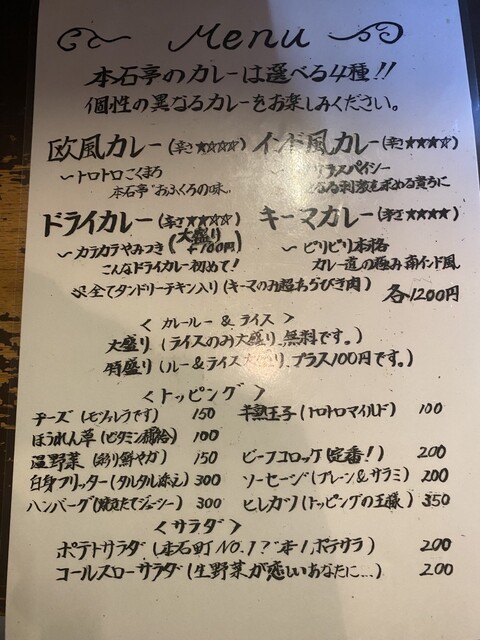 Menu
本石亭のカレーは選べる4種!!
個性の異なるカレーをお楽しみください。
欧風カレー(辛さ★☆☆☆) インド風カレー(辛さ★★★☆)
〜トロトロこくまろ スパイシー
本石亭"おふくろの味〟 刺激を求める貴方に
ドライカレー(辛さ★★☆☆) キーマカレー(辛さ★★★★)
(大盛り+100円)
〜カラカラやみつき 〜ピリピリ本格
こんなドライカレー初めて! カレー道の極み南インド風
※全てタンドリーチキン入り(キーマのみ超あらびき肉) 各1200円
<カレールー&ライス>
大盛り(ライスのみ大盛り、無料です。)
特盛り(ルー&ライス大盛り、プラス100円です。)
<トッピング>
チーズ(モツァレラです) 150 半熟玉子(トロトロマイルド) 100
ほうれん草(ビタミン補給) 100
温野菜(彩り鮮やか) 150 ビーフコロッケ(定番!) 200
白身フリッター(タルタル添え) 300 ソーセージ(プレーン&サラミ) 200
ハンバーグ(焼きたてジューシー) 300 ヒレカツ(トッピングの王様) 350
<サラダ>
ポテトサラダ(本石町NO.1?日本1、ポテサラ) 200
コールスローサラダ(生野菜が恋しいあなたに…) 200